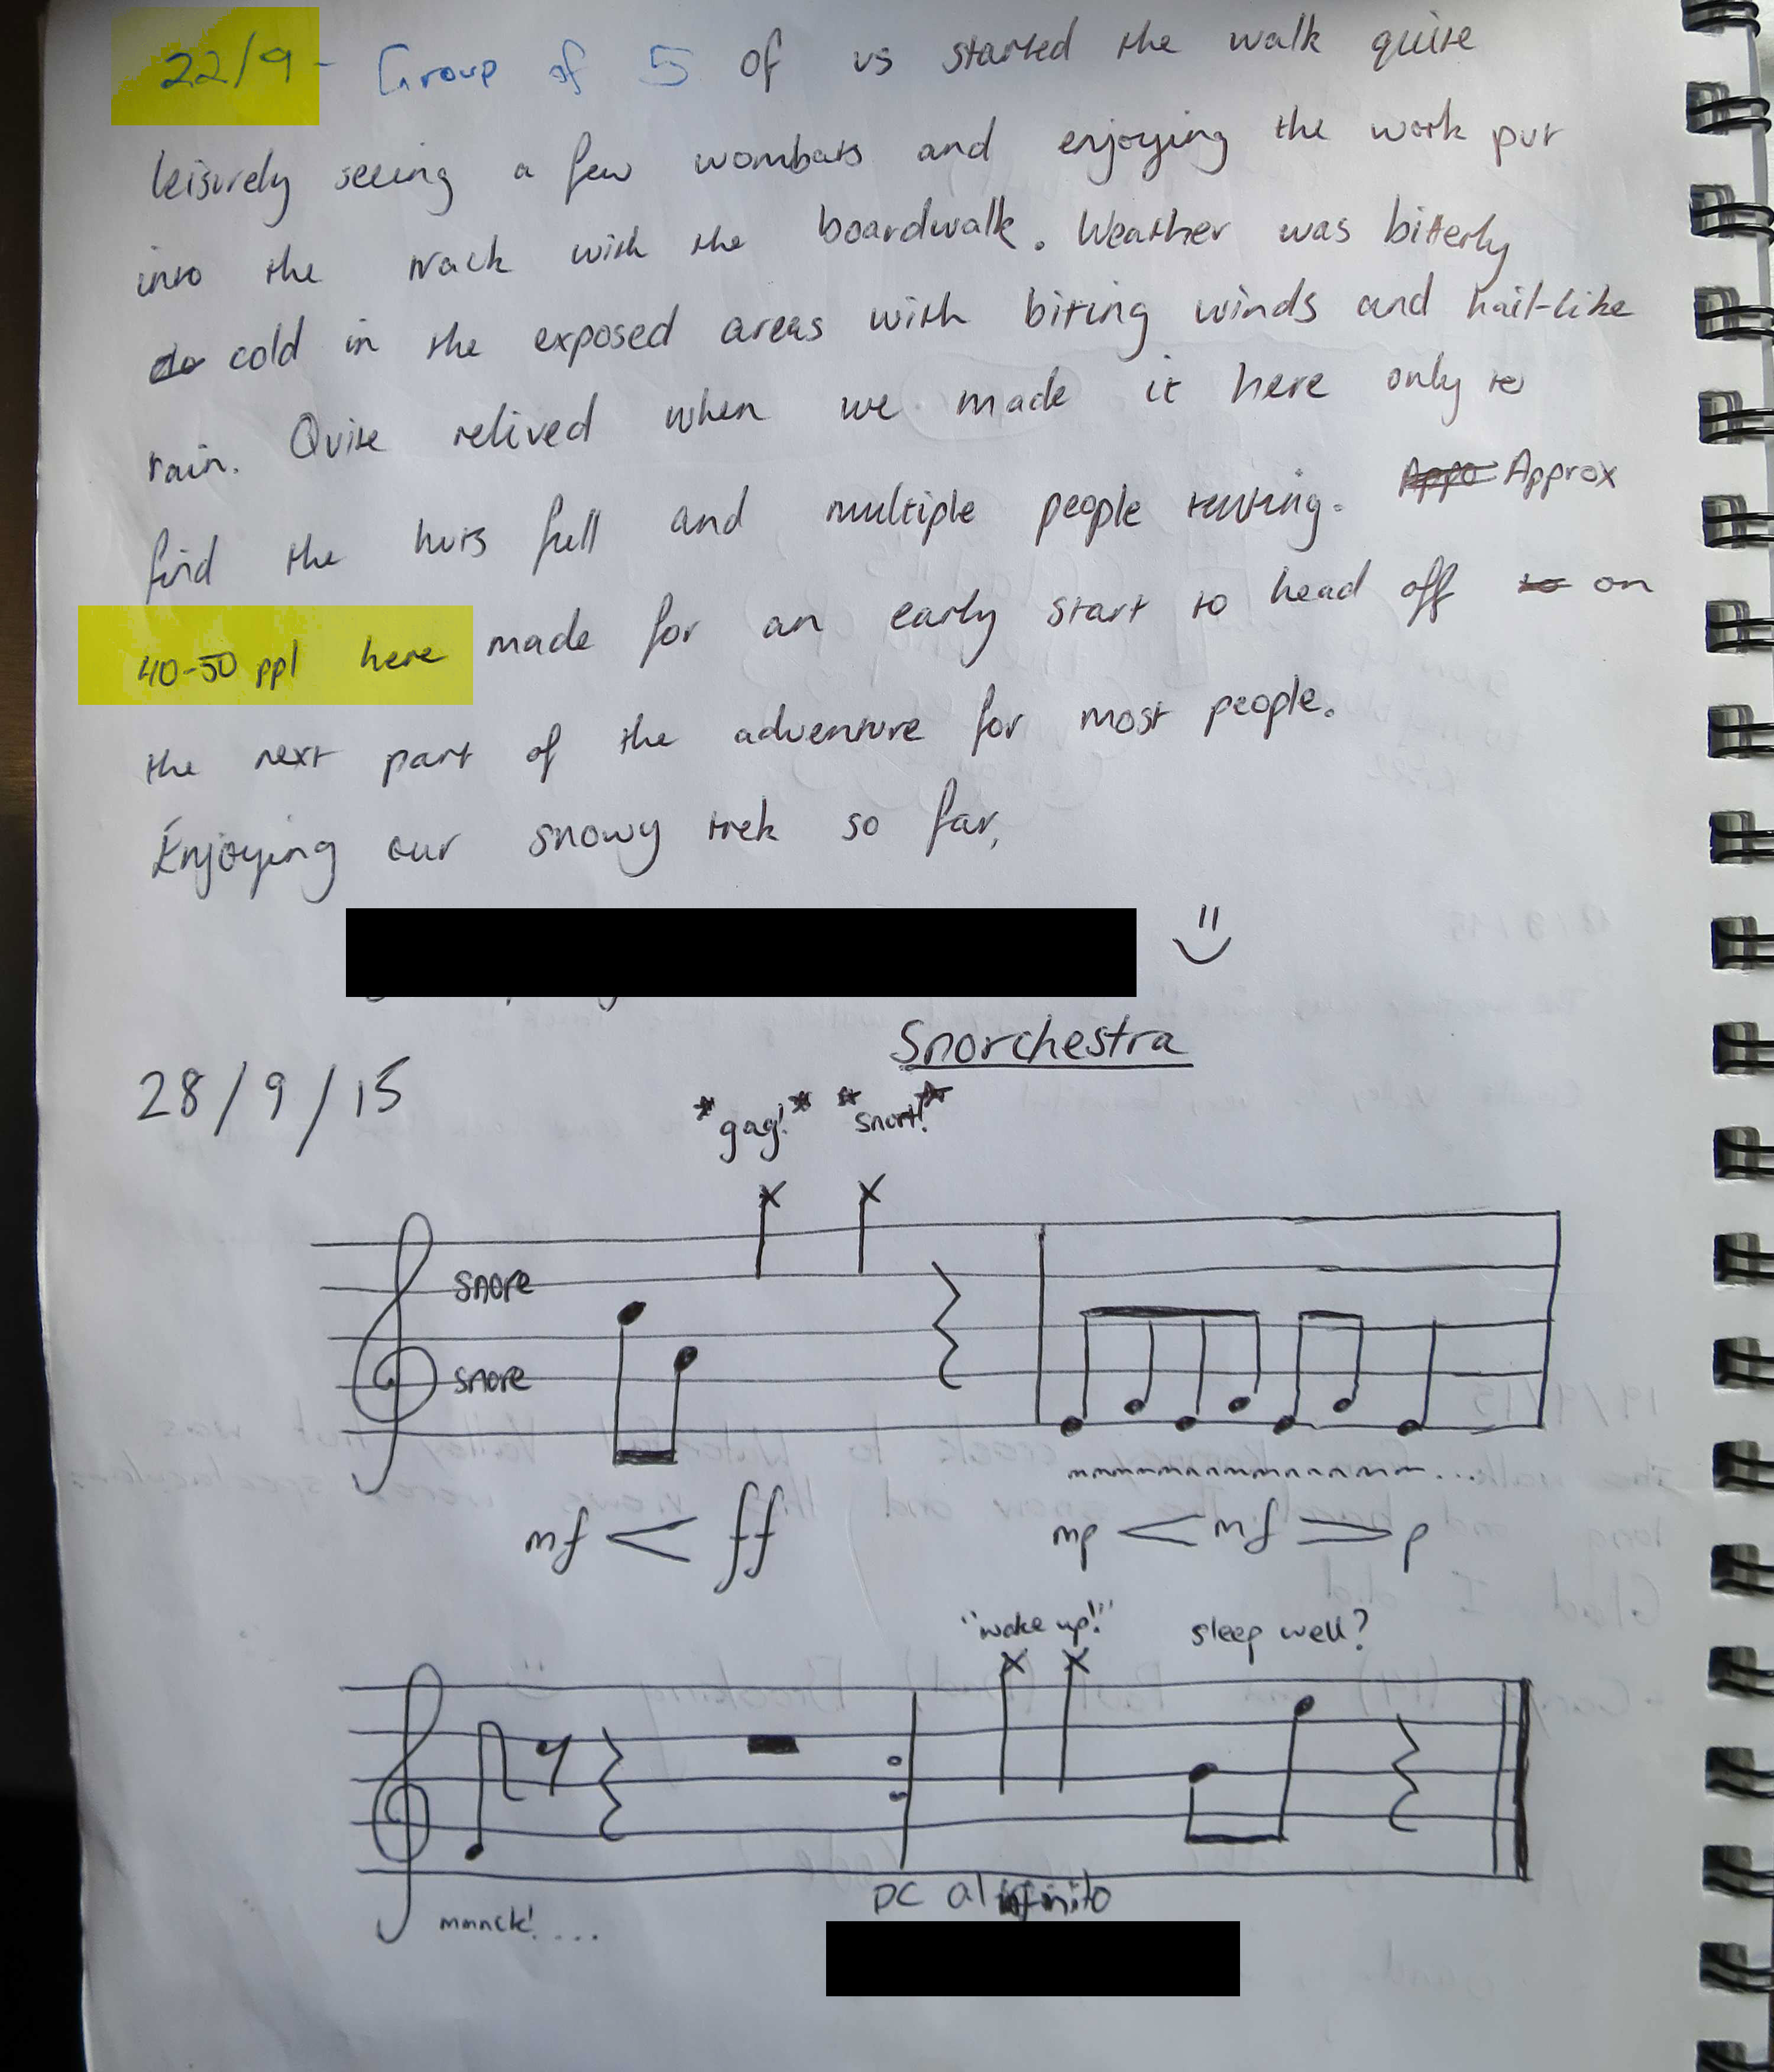 22/9 - Group of 5 of us started the walk quite
leisurely seeing a few wombats and enjoying the work put
into the track with the boardwalk. Weather was bitterly
cold in the exposed areas with biting winds and hail-like
rain. Quite relived when we made it here only to
find the huts full and multiple people tenting. Approx
40-50 ppl here made for an early start to head off on
the next part of the adventure for most people.
Enjoying our snowy trek so far,
Snorchestra
28/9/15
*gag!* *snort!*
snore
snore
mmmmmmmmmmmm....
mf < ff mp < mf > p
"wake up!" sleep well?
DC al infinito
mmnck!....